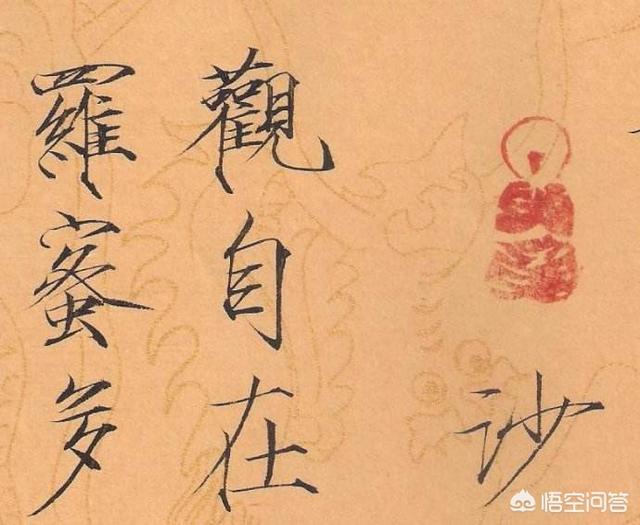 沙
觀自在
羅蜜多
悟空问答